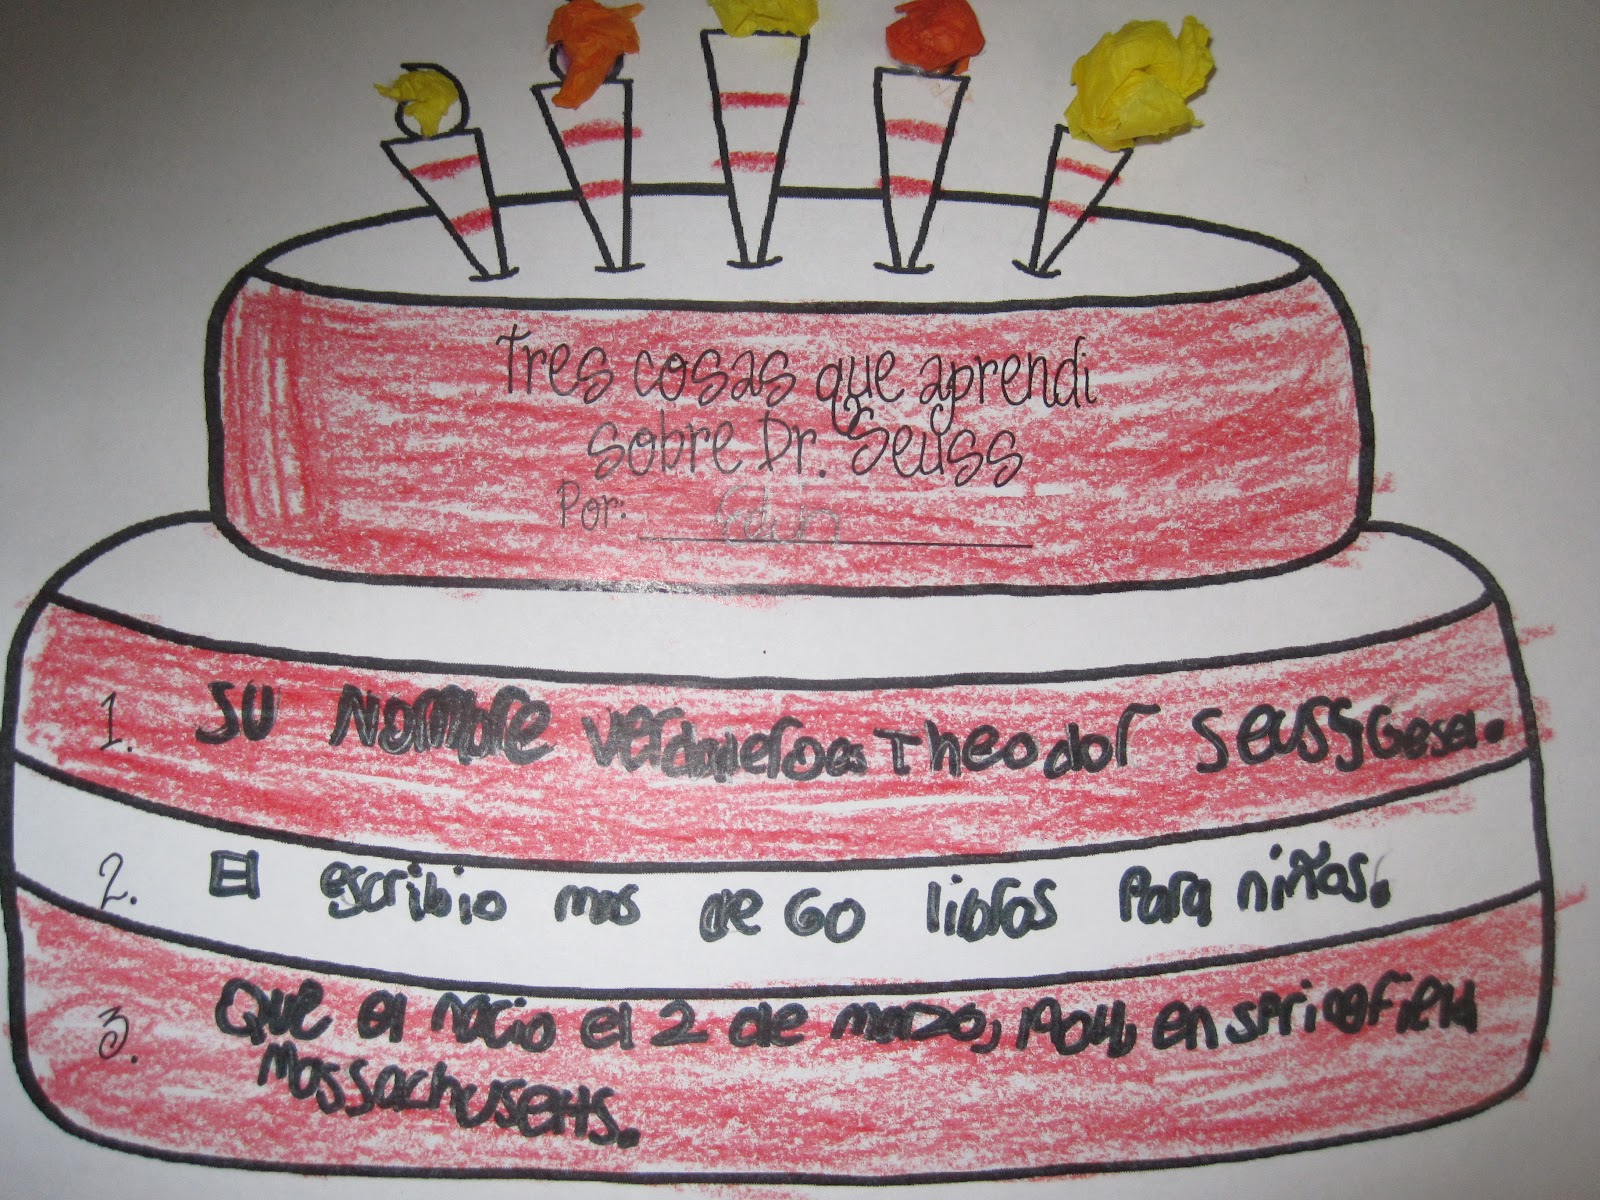 Tres cosas que aprendi
sobre Dr. Seuss
Por:
1. Su Nombre verdadero es Theodor Seuss Gesel.
2. El escribio mas de 60 libros para niños.
3. Que el nacio el 2 de marzo, 1904, en springfield
Massachusetts.